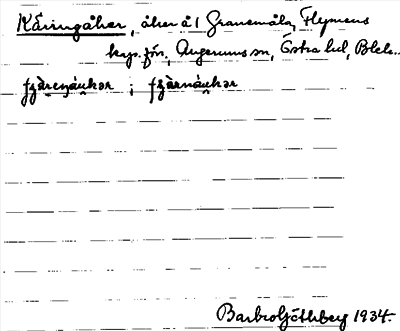 Käringåker, åker å 1 Granemåla, Flymens
kap. förs., Augerums sn, Östra hd, Blek..
fȷä̀reŋáu̯kər ; fȷä̀rnáu̯kər
Barbro Göthberg 1934.